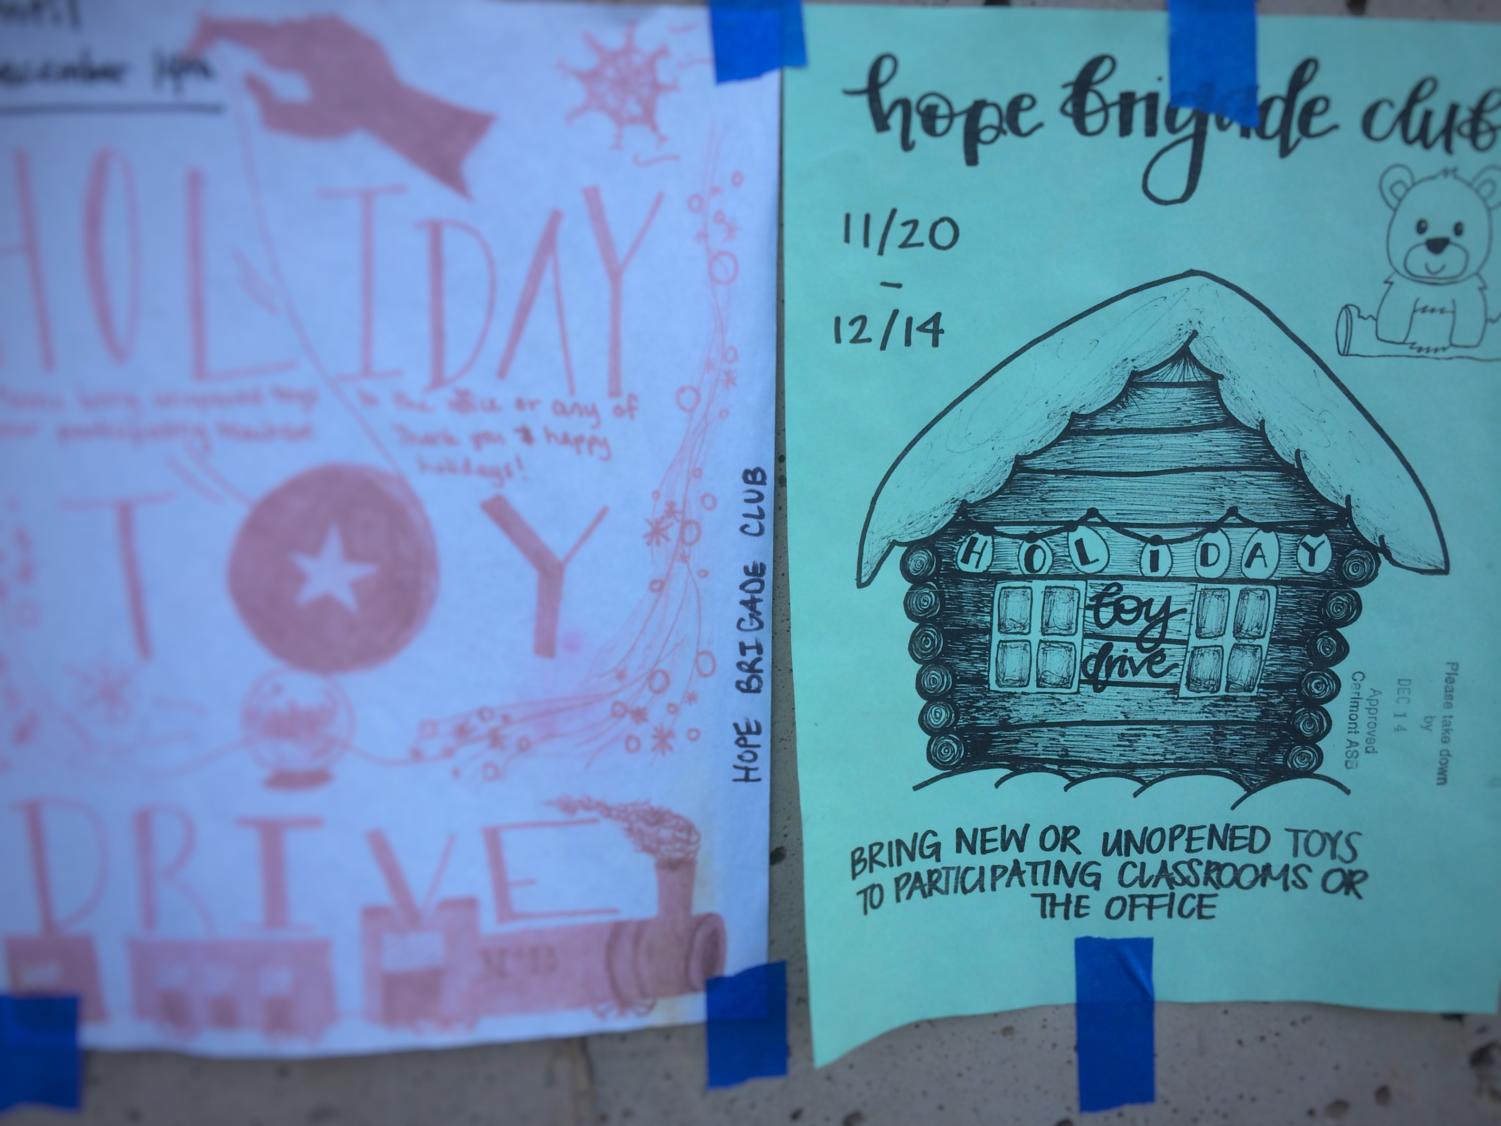 December 14th
HOLIDAY
to the office or any of
Thank you & happy
holidays!
TOY
DRIVE
HOPE BRIGADE CLUB
hope brigade club
11/20
-
12/14
HOLIDAY
toy
drive
Please take down
by
DEC 14
Approved
Carlmont ASB
BRING NEW OR UNOPENED TOYS
TO PARTICIPATING CLASSROOMS OR
THE OFFICE